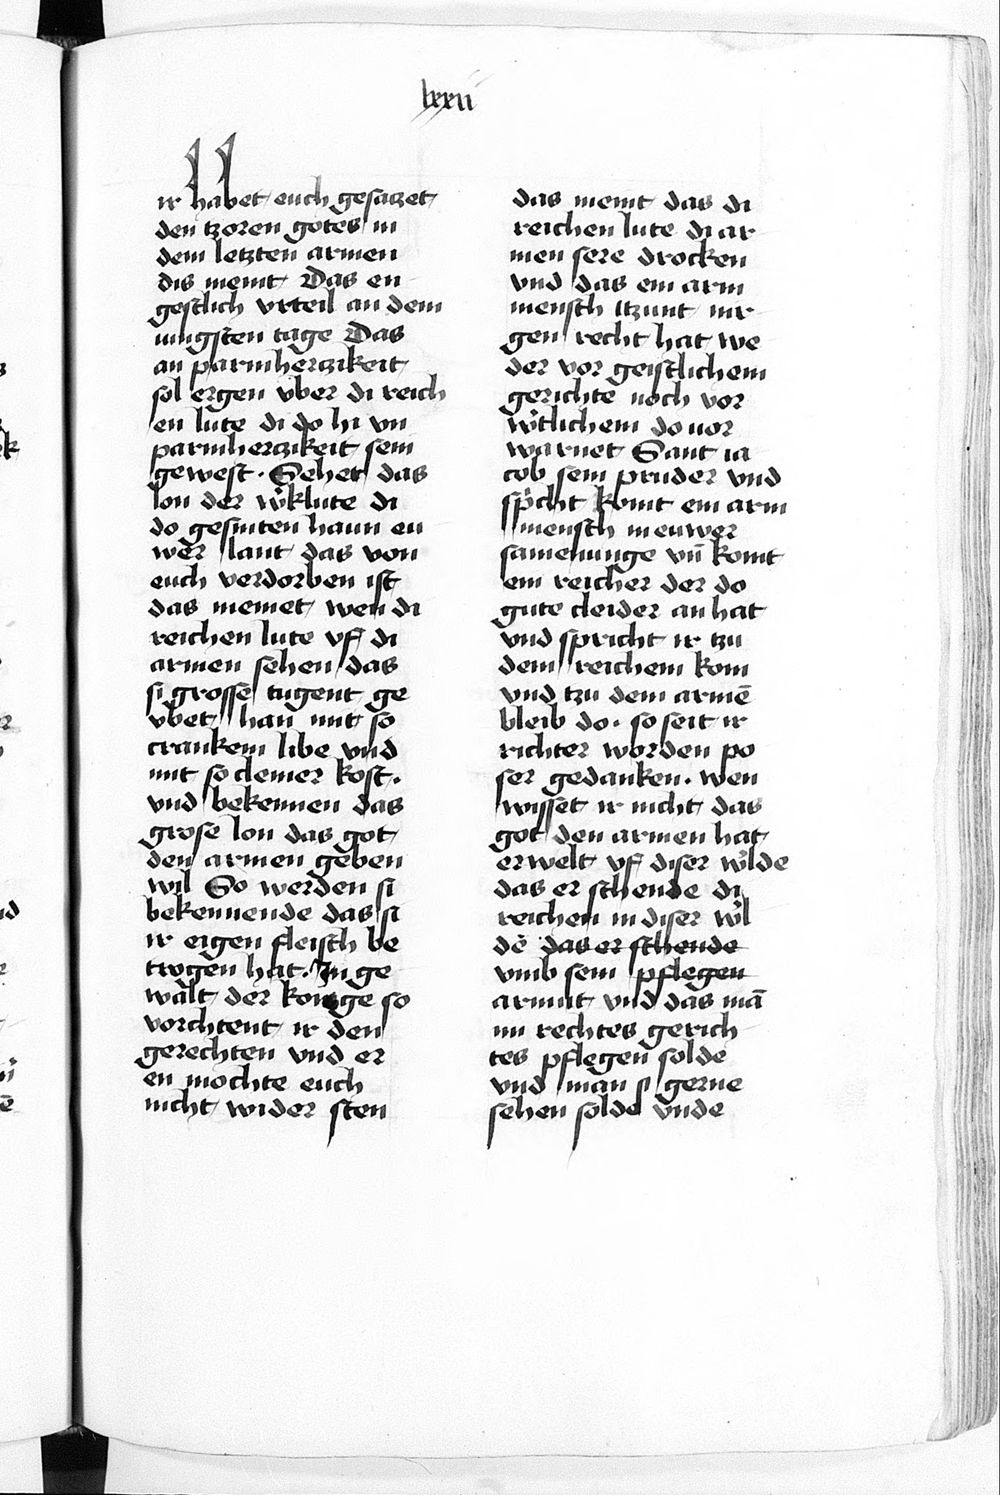 lxxii
ir habet euch gesatzet
den tzoren gotes in
dem letzten armen
dis meint Das en
gestlich vrteil an dem
iungsten tage Das
an parmherczikeit
sol ergen vber di reich
en lute di do hi vn
parmherczikeit sein
gewest. Sehet das
lon der w'klute di
do gesniten haun eu
wer lant das von
euch verdorben ist
das meinet wen di
reichen lute vf di
armen sehen das
si grosse tugent ge
vbet han mit so
crankem libe vnd
mit so cleiner kost.
vnd bekennen das
grose lon das got
den armen geben
wil So werden si
bekennende das si
ir eigen fleisch be
trogen hat. In ge
walt der konige so
vorchtent ir den
gerechten vnd er
en mochte euch
nicht wider sten
das meint das di
reichen lute di ar
men sere drocken
vnd das ein arm
mensch itzunt nir
gen recht hat we
der vor geistlichem
gerichte noch vor
w'tlichem do uor
warnet Sant ia
cob sein pruder vnd
sp'cht komt ein arm
mensch in euwer
samenunge vn̄ komt
ein reicher der do
gute cleider an hat
vnd spricht ir tzu
dem reichem kom
vnd tzu dem armē
bleib do. so seit ir
richter worden po
ser gedanken. wen
wisset ir nicht das
got den armen hat
erwelt vf diser w'lde
das er schende di
reichen in diser w'l
de das er schende
vmb sein pflegen
armut vnd das mā
im rechtes gerich
tes pflegen solde
vnd man si gerne
sehen solde vnde